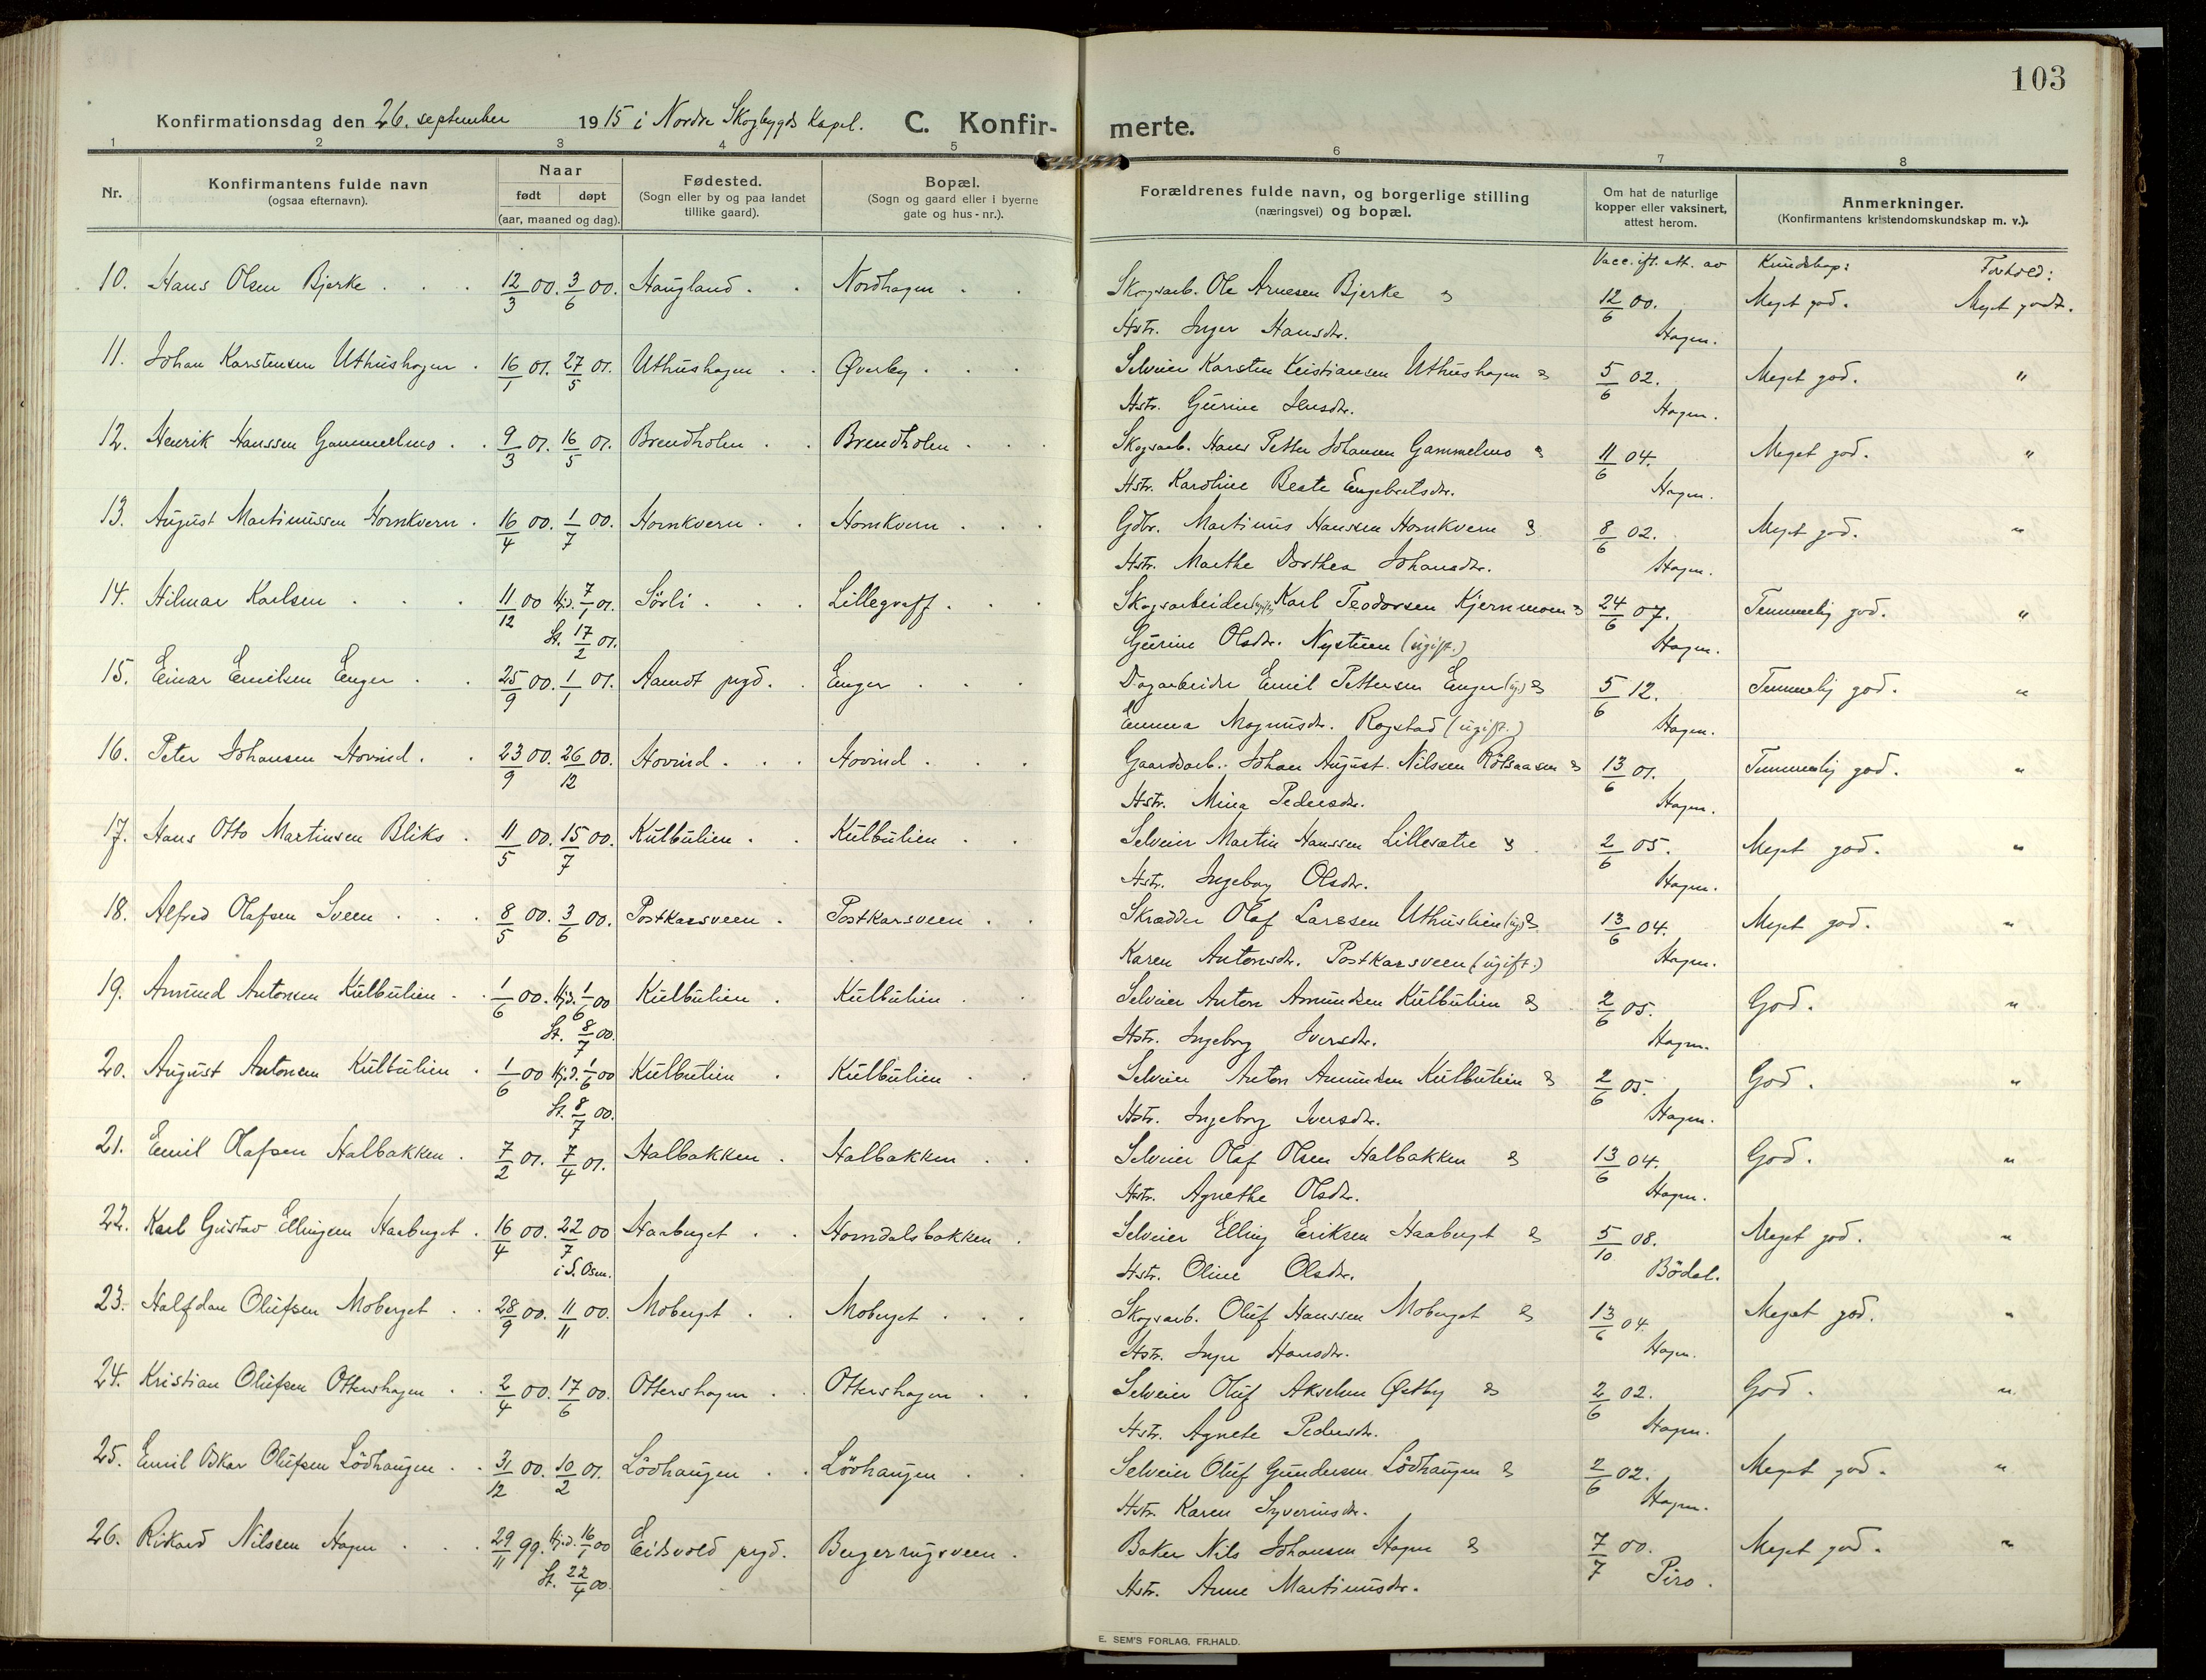 103
Konfirmationsdag den 26. september 1915 i Nordre Skogbygds Kapel. C. Konfirmerte.
1 2 3 4 5 6 7 8
Nr. Konfirmantens fulde navn (ogsaa efternavn). Naar født døpt (aar, maaned og dag). Fødested. (Sogn eller by og paa landet tillike gaard). Bopæl. (Sogn og gaard eller i byerne gate og hus-nr.). Forældrenes fulde navn, og borgerlige stilling (næringsvei) og bopæl. Om hat de naturlige kopper eller vaksinert, attest herom. Anmerkninger. (Konfirmantens kristendomskundskap m. v.).
Vacc. ift. att. av Kundskap: Forhold:
10. Hans Olsen Bjerke 12/3 00. 3/6 00. Haugland Nordhagen Skogsarb. Ole Arnesen Bjerke & 12/6 00. Meget god. Meget godt.
Hstr. Inger Hansdtr. Hagen.
11. Johan Karstensen Uthushagen 16/1 01. 27/5 01. Uthushagen Øverby Selveier Karsten Kristiansen Uthushagen & 5/6 02. Meget god. "
Hstr. Gurine Jensdtr. Hagen.
12. Henrik Hanssen Gammelmo 9/3 01. 16/5 01. Brendholen Brendholen Skogsarb. Hans Petter Johansen Gammelmo & 11/6 04. Meget god. "
Hstr. Karoline Beate Engebretsdtr. Hagen.
13. August Martinussen Hornkvern 16/4 00. 1/7 00. Hornkvern Hornkvern Gdbr. Martinus Hanssen Hornkvern & 8/6 02. Meget god. "
Hstr. Marthe Dorthea Johansdtr. Hagen.
14. Hilmar Karlsen 11/12 00 Hjd. 7/1 01. Sörli Lillegraff Skogsarbeider Karl Teodorsen Kjernmoen & 24/6 07. Temmelig god. "
St. 17/2 01. Gurine Olsdtr. Nystuen (ugift.) Hagen.
15. Einar Emilsen Enger 25/9 00. 1/1 01. Aamot prgd. Enger Dagarbeider Emil Pettersen Enger (ug.) & 5/6 12. Temmelig god. "
Emma Magnusdtr. Rogstad (ugift.) Hagen.
16. Peter Johansen Hovind 23/9 00. 26/12 00. Hovind Hovind Gaardsarb. Johan August Nilssen Rötsaasen & 13/6 01. Temmelig god. "
Hstr. Mina Pedersdtr. Hagen.
17. Hans Otto Martinsen Bliks 11/5 00. 15/7 00. Kulbulien Kulbulien Selveier Martin Hanssen Lillesætre & 2/6 05. Meget god. "
Hstr. Ingeborg Olsdtr. Hagen.
18. Alfred Olafsen Sveen 8/5 00. 3/6 00. Postkarsveen Postkarsveen Skrædder Olaf Larssen Uthuslien (ug.) & 13/6 04. Meget god. "
Karen Antonsdtr. Postkarsveen (ugift.) Hagen.
19. Amund Antonsen Kulbulien 1/6 00. Hjd. 1/6 00 Kulbulien Kulbulien Selveier Anton Amundsen Kulbulien & 2/6 05. God. "
St. 8/7 00. Hstr. Ingeborg Iversdtr. Hagen.
20. August Antonsen Kulbulien 1/6 00 Hjd. 1/6 00 Kulbulien Kulbulien Selveier Anton Amundsen Kulbulien & 2/6 05. God. "
St. 8/7 00. Hstr. Ingeborg Iversdtr. Hagen.
21. Emil Olafsen Halbakken 7/2 01. 7/4 01. Halbakken Halbakken Selveier Olaf Olsen Halbakken & 13/6 04. God. "
Hstr. Agnethe Olsdtr. Hagen.
22. Karl Gustav Ellingsen Haaberget 16/4 00. 22/7 00 Haaberget Horndalsbakken Selveier Elling Eriksen Haaberget & 5/10 08. Meget god. "
i S. Osen. Hstr. Oline Olsdtr. Bödal.
23. Halfdan Olufsen Moberget 28/9 00. 11/11 00. Moberget Moberget Skogsarb. Oluf Hanssen Moberget & 13/6 04. Meget god. "
Hstr. Inger Hansdtr. Hagen.
24. Kristian Olufsen Ottershagen 2/4 00. 17/6 00. Ottershagen Ottershagen Selveier Oluf Akselsen Østby & 2/6 02. God. "
Hstr. Agnete Pedersdtr. Hagen.
25. Emil Oskar Olufsen Lödhaugen 31/12 00. 10/2 01. Lödhaugen Lövhaugen Selveier Oluf Gundersen Lödhaugen & 2/6 02. Meget god. "
Hstr. Karen Syverinsdtr. Hagen.
26. Rikard Nilssen Hagen 29/11 99. Hjd. 16/1 00 Eidsvold prgd. Bergerrugsveen Baker Nils Johansen Hagen & 7/7 00. Meget god. "
St. 22/4 00. Hstr. Anne Martinusdtr. Piro.
E. SEM'S FORLAG, FR.HALD.